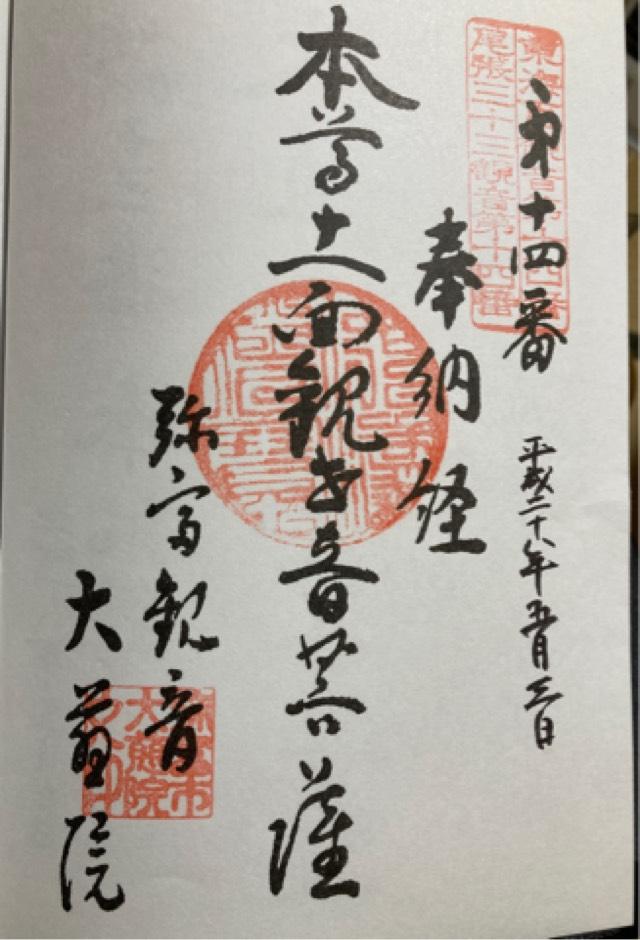 東海百観音第十四番
尾張三十三観音第十四番
第十四番
平成二十八年五月三日
奉納経
本尊十一面観世音菩薩
弥富観音
大慈院